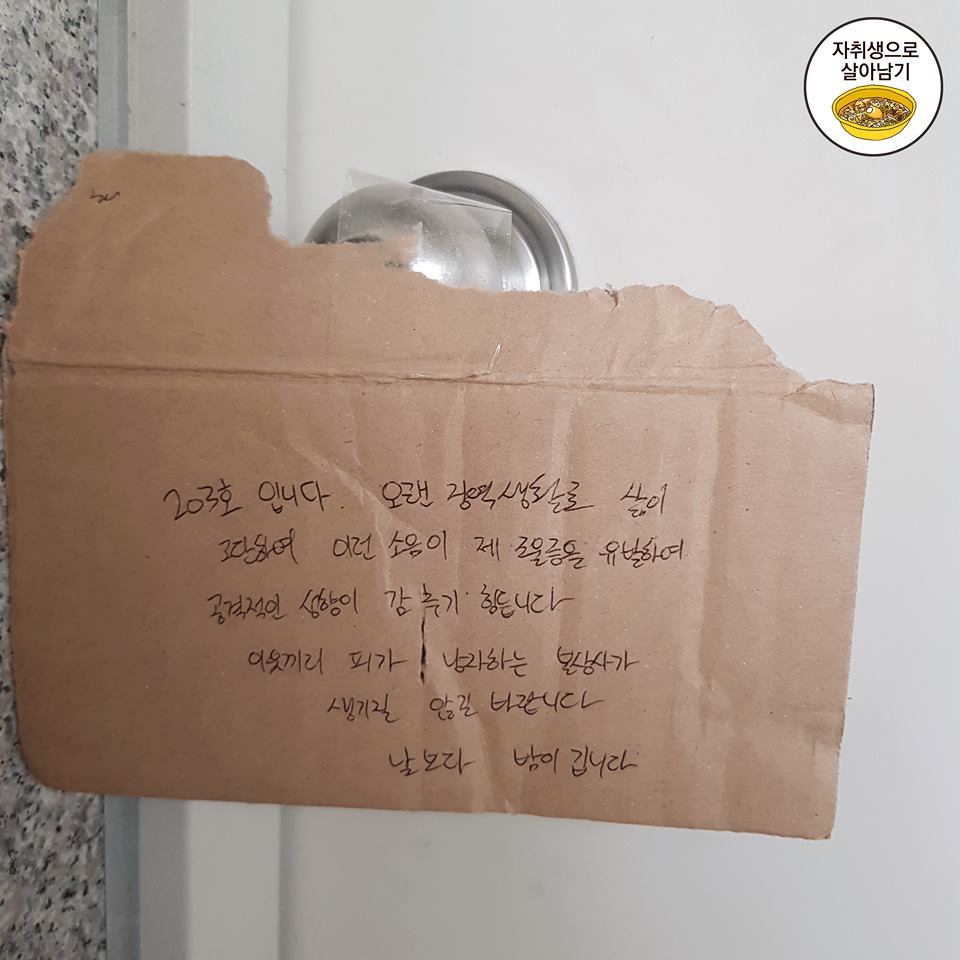 자취생으로
살아남기
203호 입니다. 오랜 징역생활로 삶이
고단하여 이런 소음이 제 조울증을 유발하여
공격적인 성향이 감추기 힘듭니다
이웃끼리 피가 낭자하는 불상사가
생기질 않길 바랍니다
날보다 밤이 깁니다